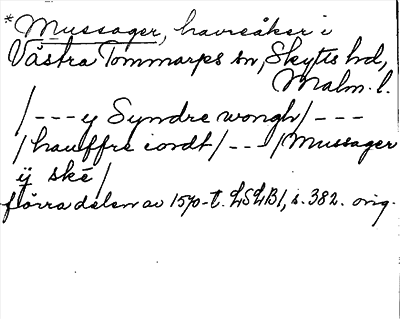 *Mussager, havreåker i
Västra Tommarps sn, Skytts hd,
Malm. l.
/--- y Syndre wongh/---
/hauffre iordt/---/Mussager
ÿ ské/
förra delen av 1570-t. LSLB1, s. 382. orig.